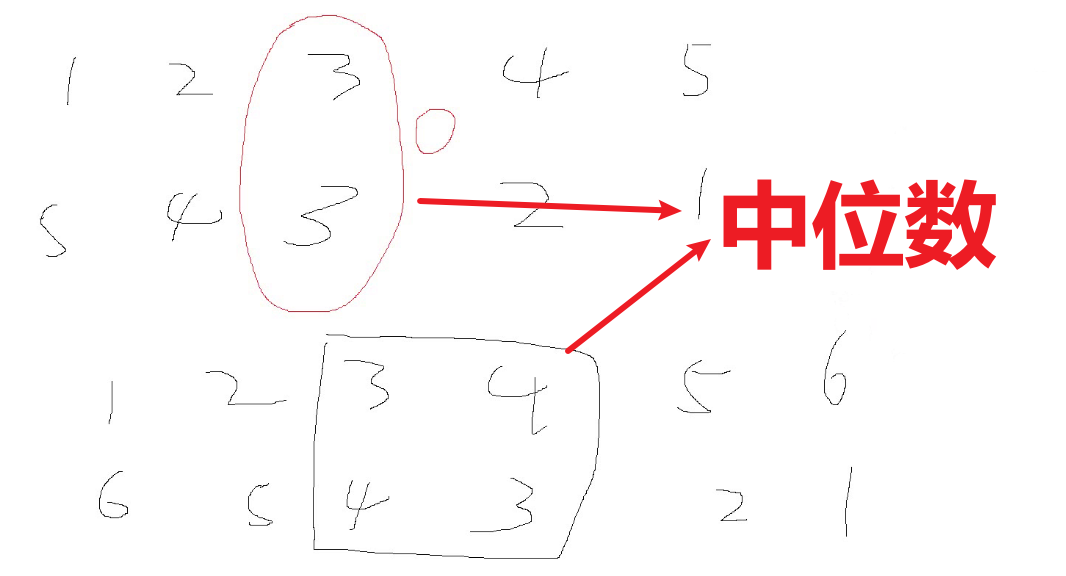 1 2 3 4 5
5 4 3 2 1
中位数
1 2 3 4 5 6
6 5 4 3 2 1